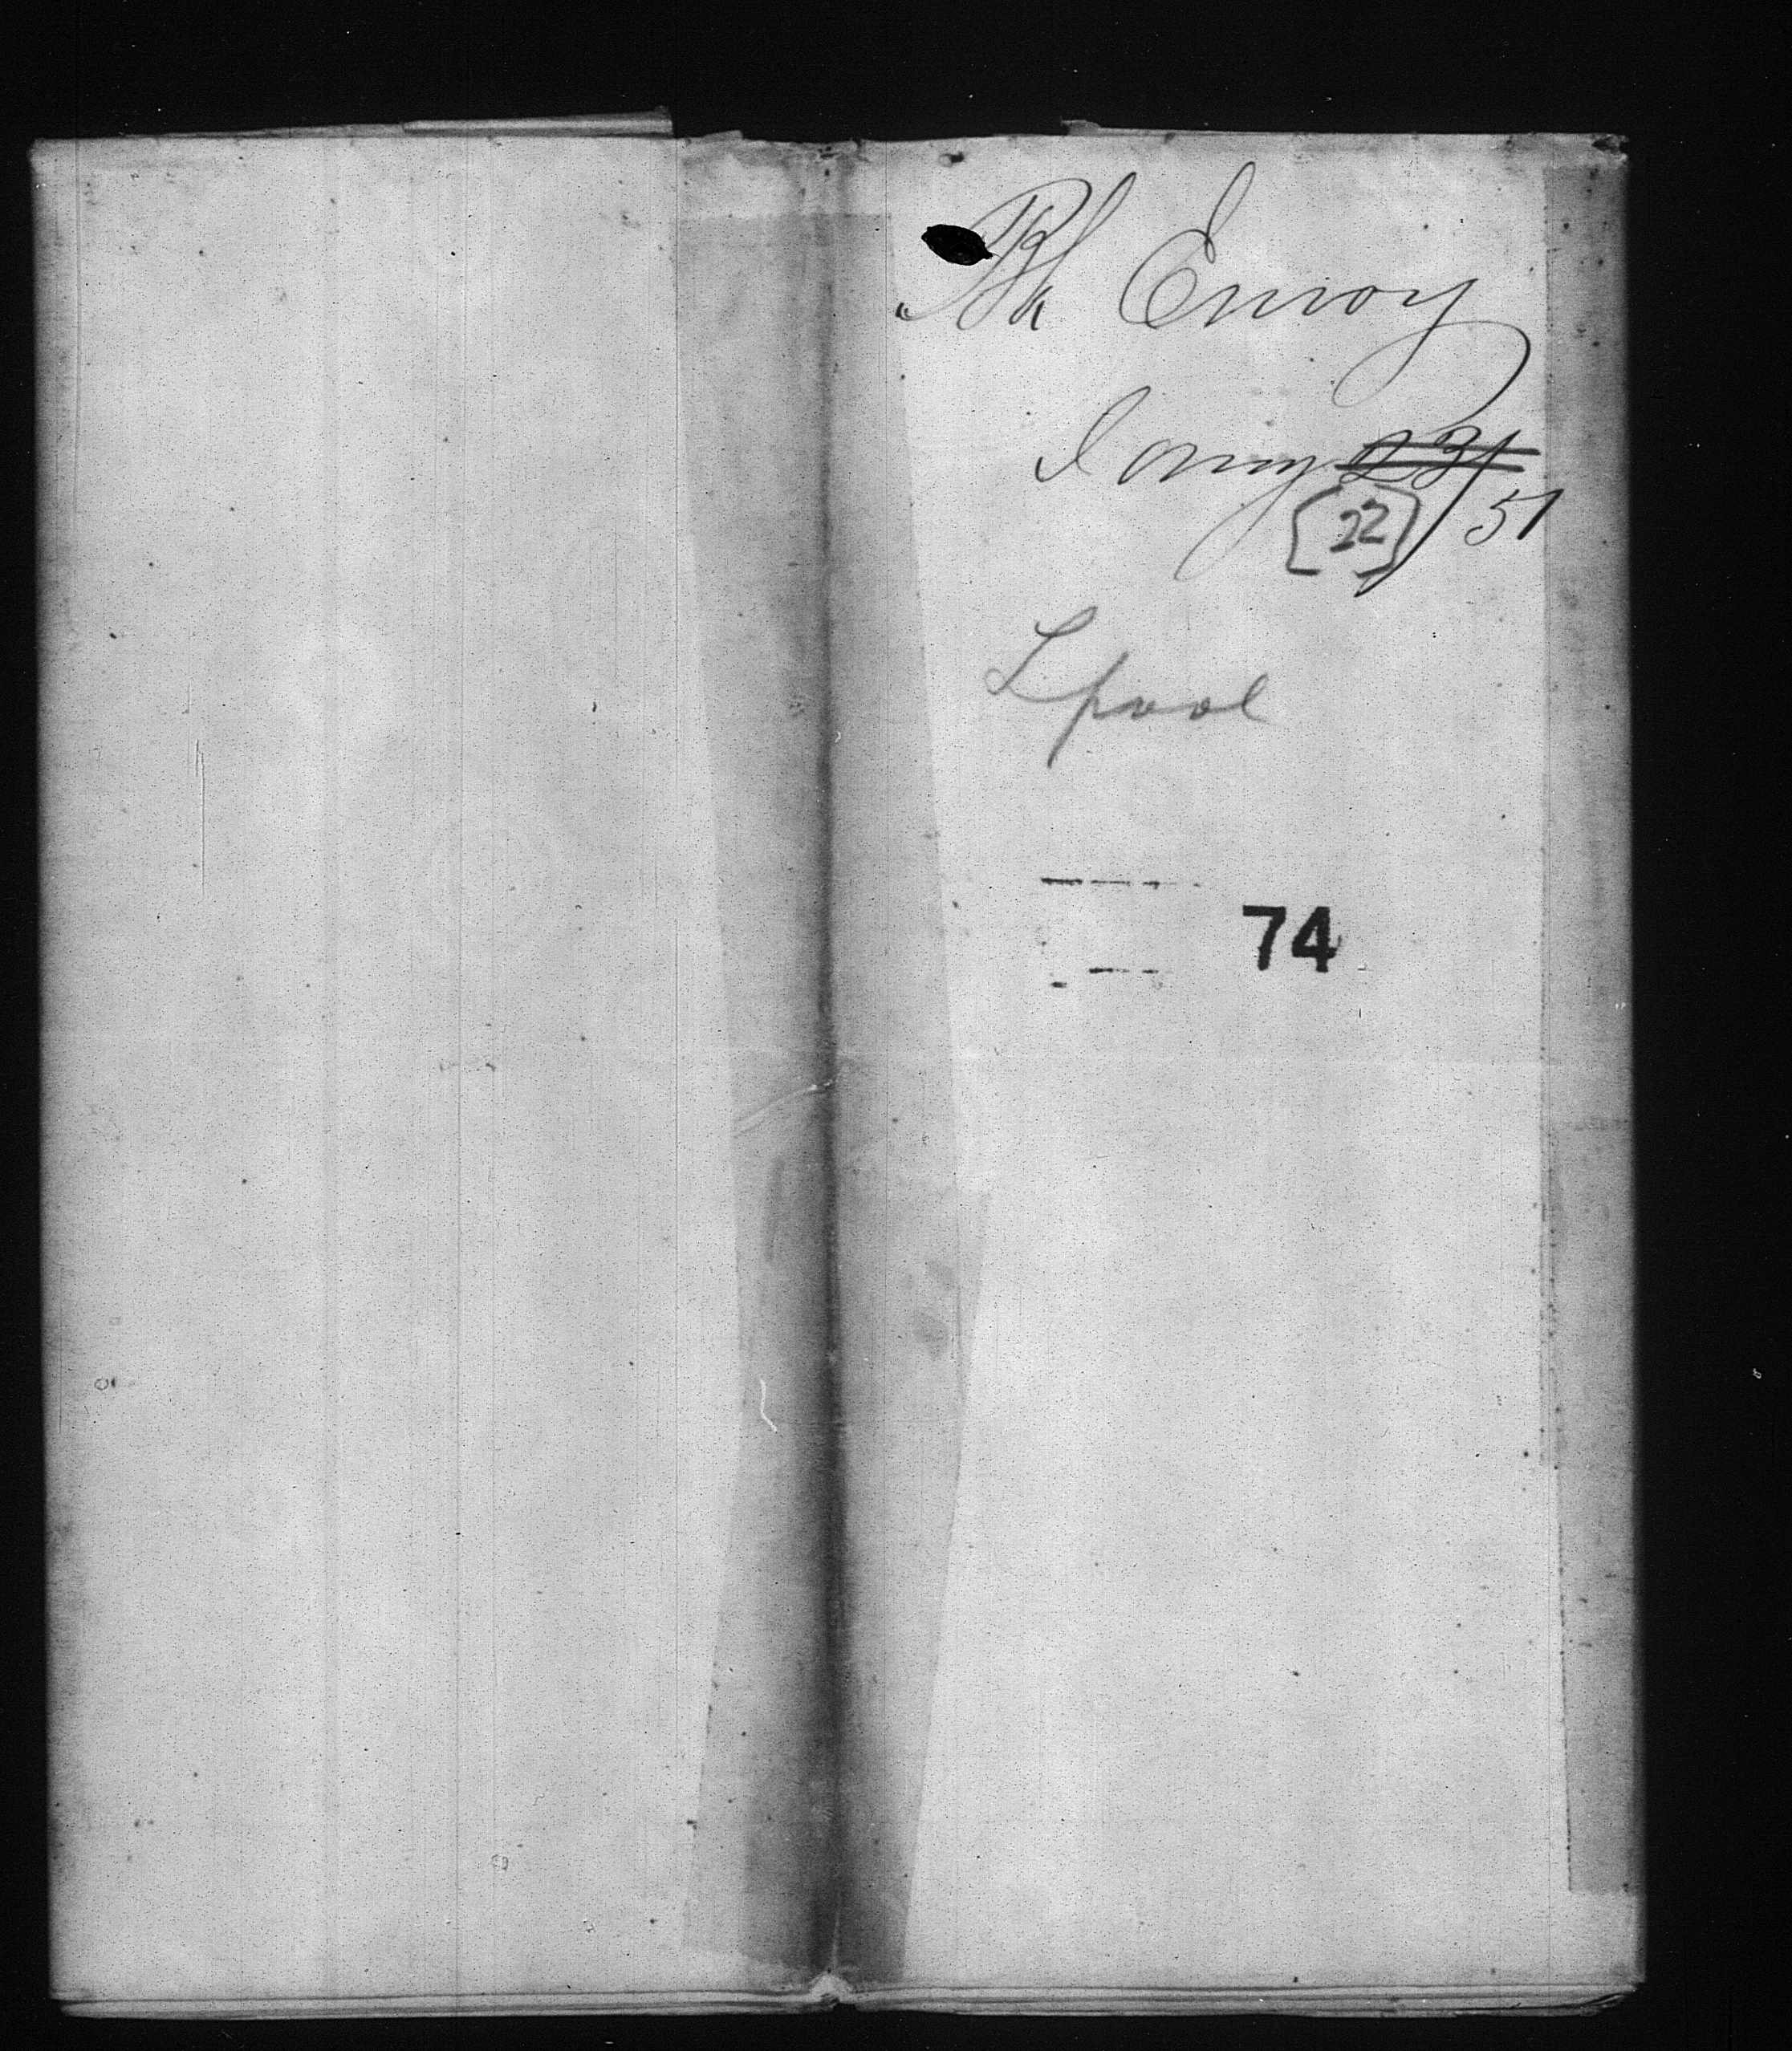 Bk Envoy
Jany ~~23~~/51
[22]
Lpool
74